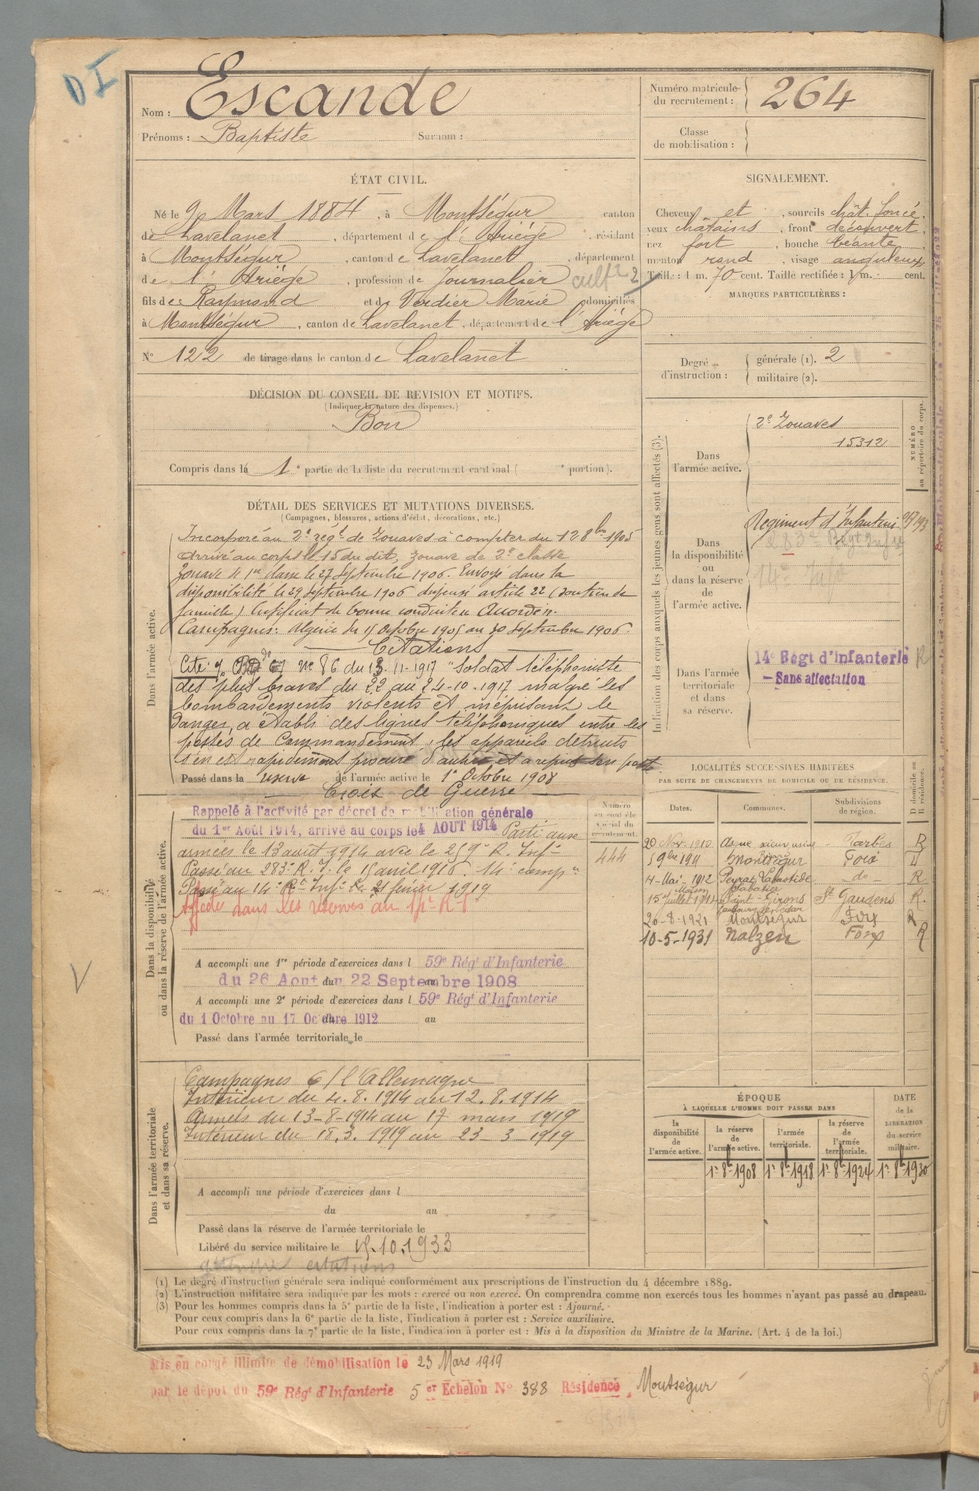 DI
Nom : Escande
Prénoms : Baptiste Surnom :
Numéro matricule du recrutement : 264
Classe de mobilisation :
ÉTAT CIVIL.
Né le 9 Mars 1884, à Montségur canton
de Lavelanet, département de l'Ariège, résidant
à Montségur, canton de Lavelanet, département
de l'Ariège, profession de Journalier cultr 2
fils de Raymond et de Verdier Marie domiciliés
à Montségur, canton de Lavelanet, département de l'Ariège
N° 122 de tirage dans le canton de Lavelanet
SIGNALEMENT.
Cheveux et , sourcils chât. foncé.
yeux châtains, front découvert.
nez fort, bouche béante,
menton rond, visage anguleux.
Taille : 1 m. 70 cent. Taille rectifiée : 1 m. cent.
MARQUES PARTICULIÈRES :
Degré d'instruction : générale (1). 2
militaire (2).
DÉCISION DU CONSEIL DE REVISION ET MOTIFS.
(Indiquer la nature des dispenses.)
Bon
Compris dans la 1e partie de la liste du recrutement cantonal ( e portion).
DÉTAIL DES SERVICES ET MUTATIONS DIVERSES.
(Campagnes, blessures, actions d'éclat, décorations, etc.)
Dans l'armée active.
Incorporé au 2e régt de Zouaves à compter du 12 8bre 1905
Arrivé au corps le 15 du dit, zouave de 2e classe
Zouave de 1re classe le 27 Septembre 1906. Envoyé dans la
disponibilité le 29 Septembre 1906 dispensé article 22 (soutien de
famille) Certificat de bonne conduite "Accordé".
Campagnes : Algérie du 15 Octobre 1905 au 30 Septembre 1906.
Citations
Cité N° 86 du 13-11-1917 "Soldat téléphoniste
des plus braves du 22 au 24-10-1917 malgré les
bombardements violents et méprisant le
danger, a établi des lignes téléphoniques entre les
postes de Commandement, les appareils détruits
s'en est rapidement procuré d'autres et a repris son poste
Passé dans la réserve de l'armée active le 1er Octobre 1908
Croix de Guerre
Dans la disponibilité ou dans la réserve de l'armée active.
Rappelé à l'activité par décret de mobilisation générale
du 1er Août 1914, arrivé au corps le 4 AOUT 1914 Parti aux
armées le 13 août 1914 avec le 259e R. Inf.
Passé au 283e R. I. le 15 avril 1916. 14e Compie
Passé au 14e Rt Inf. le 21 février 1919
Affecté dans les réserves au 14e R I
Numéro au contrôle spécial du recrutement.
444
A accompli une 1re période d'exercices dans l 59e Régt d'Infanterie
du 26 Aout au 22 Septembre 1908
A accompli une 2e période d'exercices dans l 59e Régt d'Infanterie
du 1 Octobre au 17 Octobre 1912 au
Passé dans l'armée territoriale le
Dans l'armée territoriale et dans sa réserve.
Campagnes C/ l'Allemagne
Intérieur du 4.8.1914 au 12.8.1914
Armées du 13-8-1914 au 17 mars 1919
Intérieur du 18.3.1919 au 23-3-1919
A accompli une période d'exercices dans l
du au
Passé dans la réserve de l'armée territoriale le
Libéré du service militaire le 15.10.1933
citations
Indication des corps auxquels les jeunes gens sont affectés (3).
NUMÉRO au répertoire du corps.
Dans l'armée active.
2e Zouaves
15312
Dans la disponibilité ou dans la réserve de l'armée active.
Régiment d'Infanterie
283e Régt Infie
14e Infie
Dans l'armée territoriale et dans sa réserve.
14e Régt d'Infanterie R
– Sans affectation
LOCALITÉS SUCCESSIVES HABITÉES
PAR SUITE DE CHANGEMENTS DE DOMICILE OU DE RÉSIDENCE.
Dates. Communes. Subdivisions de région. D domicile ou R résidence.
20 Nov. 1910 Tarbes R
5 9bre 1911 Montségur Foix D
4-Mai-1912 Peyrat Labastide -do- R
15 juillet 1914 Saint-Girons St Gaudens R.
26-8-1921 Montségur Foix R
10-5-1931 Nalzen Foix R
ÉPOQUE
À LAQUELLE L'HOMME DOIT PASSER DANS
DATE de la LIBÉRATION du service militaire.
la disponibilité de l'armée active. la réserve de l'armée active. l'armée territoriale. la réserve de l'armée territoriale.
1er 8bre 1908 1er 8bre 1918 1er 8bre 1924 1er 8bre 1930
(1) Le degré d'instruction générale sera indiqué conformément aux prescriptions de l'instruction du 4 décembre 1889.
(2) L'instruction militaire sera indiquée par les mots : exercé ou non exercé. On comprendra comme non exercés tous les hommes n'ayant pas passé au drapeau.
(3) Pour les hommes compris dans la 5e partie de la liste, l'indication à porter est : Ajourné.
Pour ceux compris dans la 6e partie de la liste, l'indication à porter est : Service auxiliaire.
Pour ceux compris dans la 7e partie de la liste, l'indication à porter est : Mis à la disposition du Ministre de la Marine. (Art. 4 de la loi.)
Mis en congé illimité de démobilisation le 23 Mars 1919
par le dépôt du 59e Régt d'Infanterie 5 er Echelon N° 388 Résidence Montségur